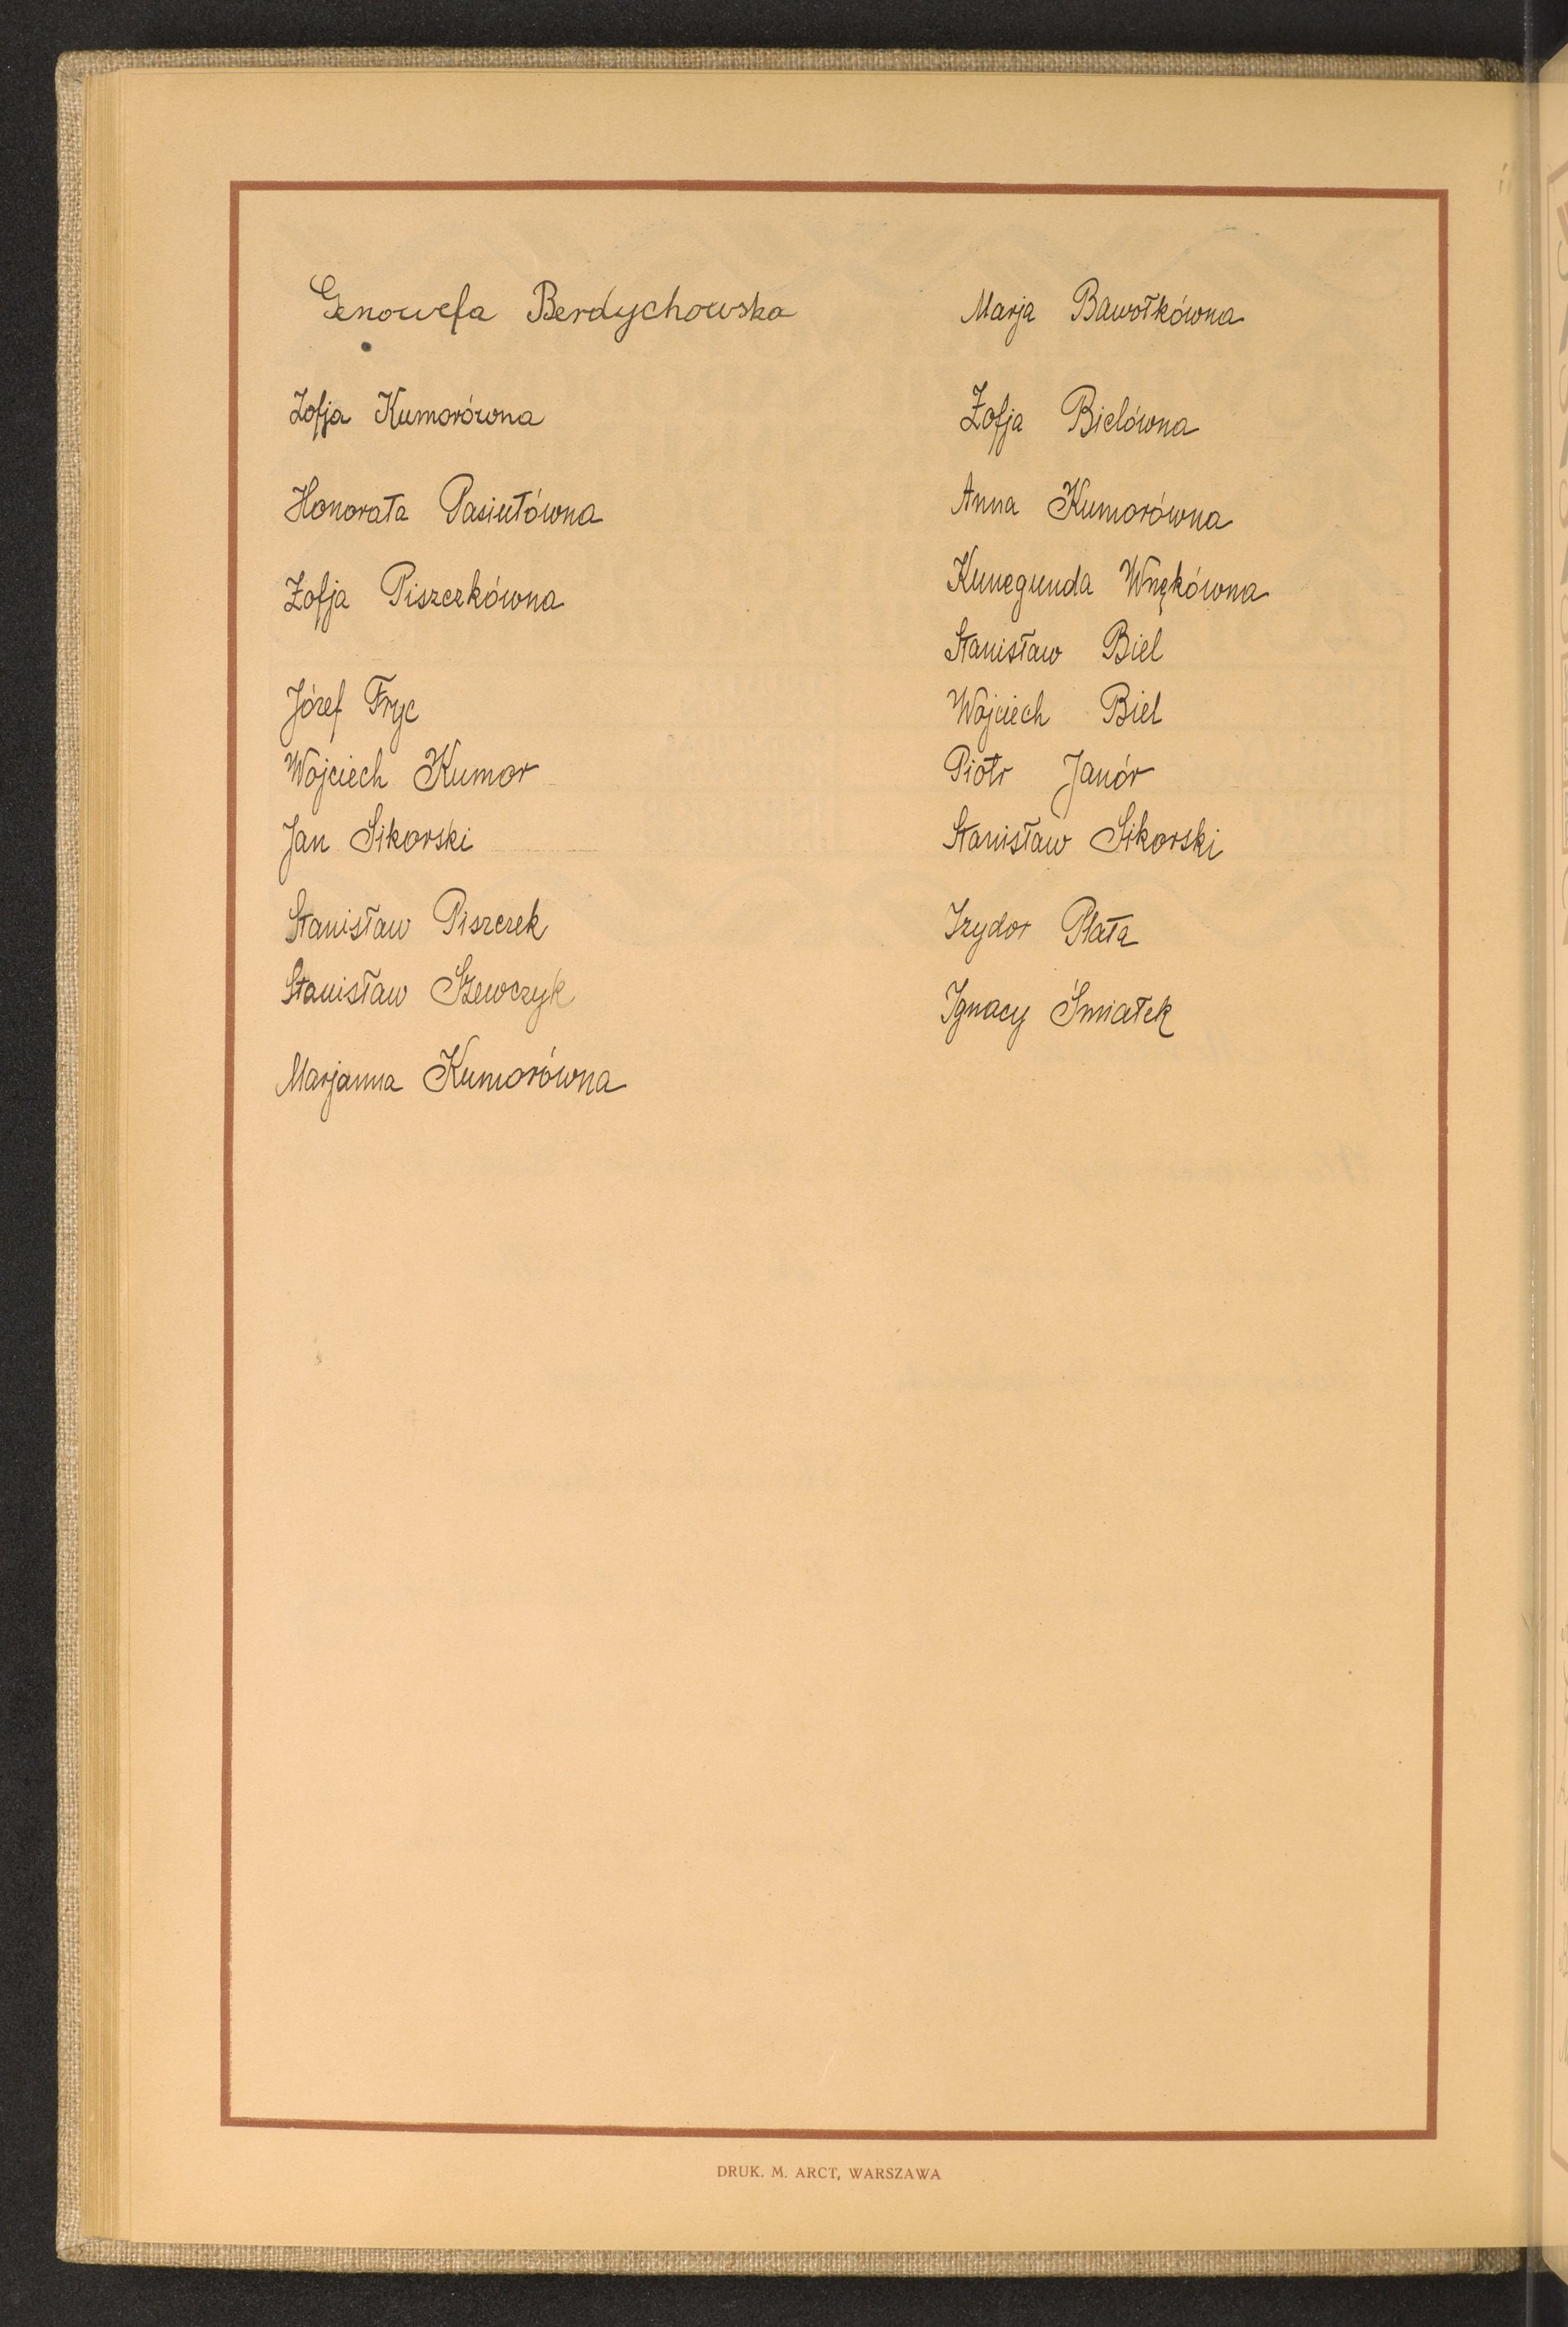 Genowefa Berdychowska
Zofja Kumorówna
Honorata Pasiutówna
Zofja Piszczkówna
Józef Fryc
Wojciech Kumor
Jan Sikorski
Stanisław Piszczek
Stanisław Szewczyk
Marjanna Kumorówna
Marja Bawołkówna
Zofja Bielówna
Anna Kumorówna
Kunegunda Wnękówna
Stanisław Biel
Wojciech Biel
Piotr Janór
Stanisław Sikorski
Izydor Płata
Ignacy Śmiałek
DRUK. M. ARCT, WARSZAWA